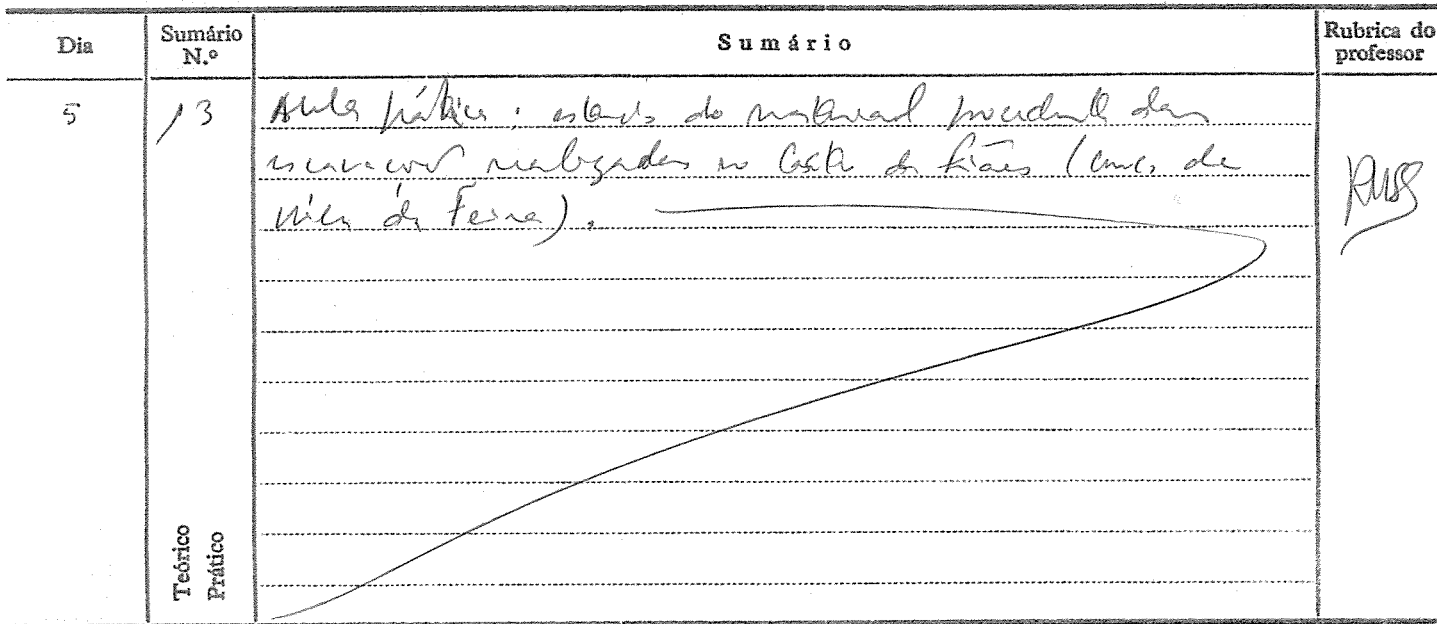 Dia
Sumário N.º
Sumário
Rubrica do professor
5
13
Aula prática: estudo do material procedente das
escavações realizadas no Castro de Fiães (conc. de
Vila da Feira).
Teórico
Prático